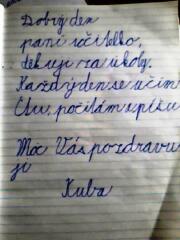 Dobrý den
paní učitelko,
děkuji za úkoly.
Každý den se učím
Čtu, počítám a píšu
Moc Vás pozdravu
ji
Kuba